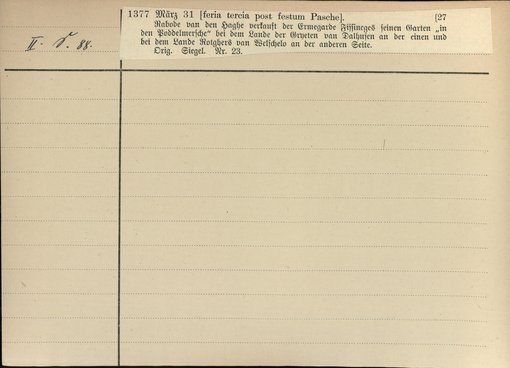 1377 März 31 [feria tercia post festum Pasche]. [27
Rabode van den Haghe verkauft der Ermegarde Fissinges seinen Garten „in
den Poddelmersche“ bei dem Lande der Gryeten van Dalhusen an der einen und
bei dem Lande Rotghers van Welschelo an der anderen Seite.
Orig. Siegel. Nr. 23.
II. S. 88.